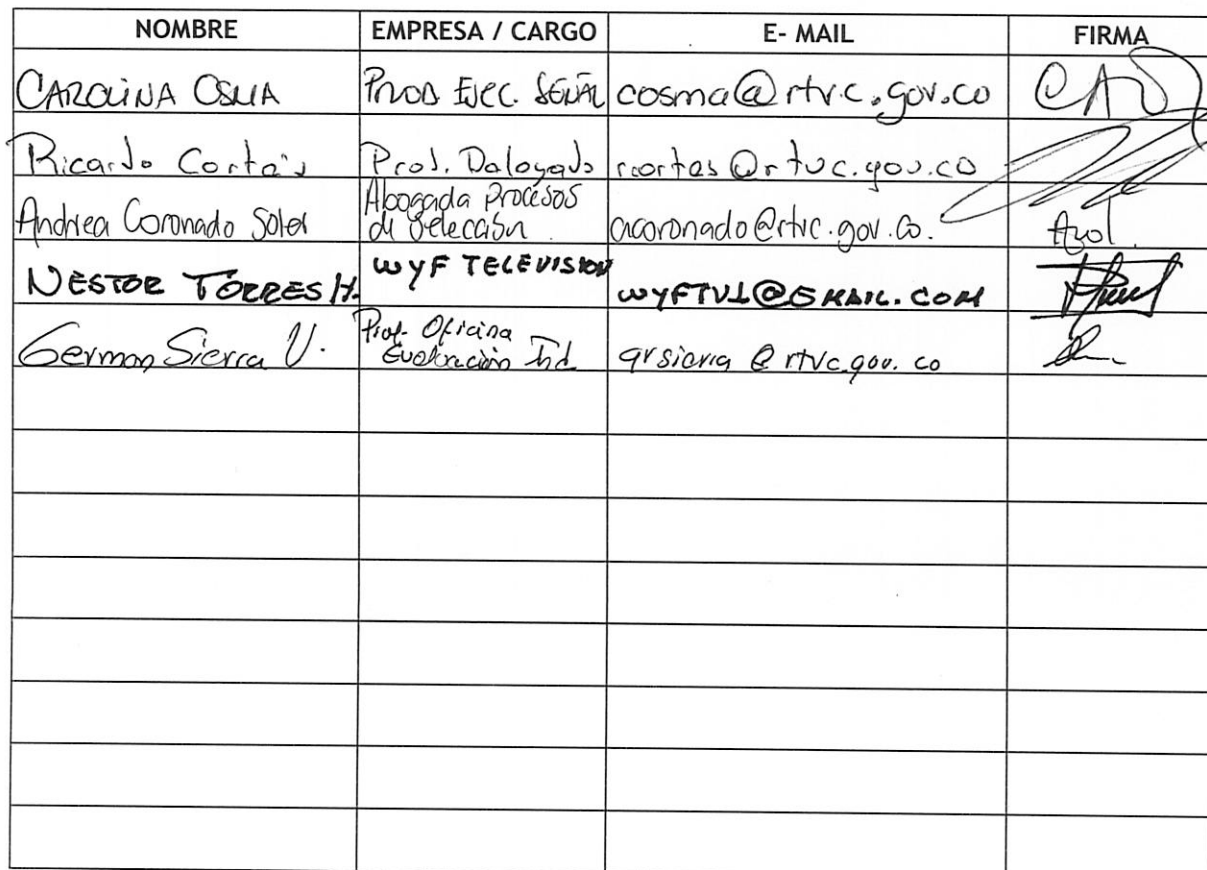 NOMBRE EMPRESA / CARGO E- MAIL FIRMA
CAROLINA OSMA PROD EJEC. SEÑAL cosma@rtvc.gov.co
Ricardo Cortés Prod. Delegado rcortes@rtvc.gov.co
Andrea Coronado Soler Abogada Procesos
de Selección acoronado@rtvc.gov.co.
NESTOR TORRES H. WYF TELEVISION WYFTV1@GMAIL.COM
German Sierra V. Prof. Oficina
Evaluación Ind. grsierra@rtvc.gov.co